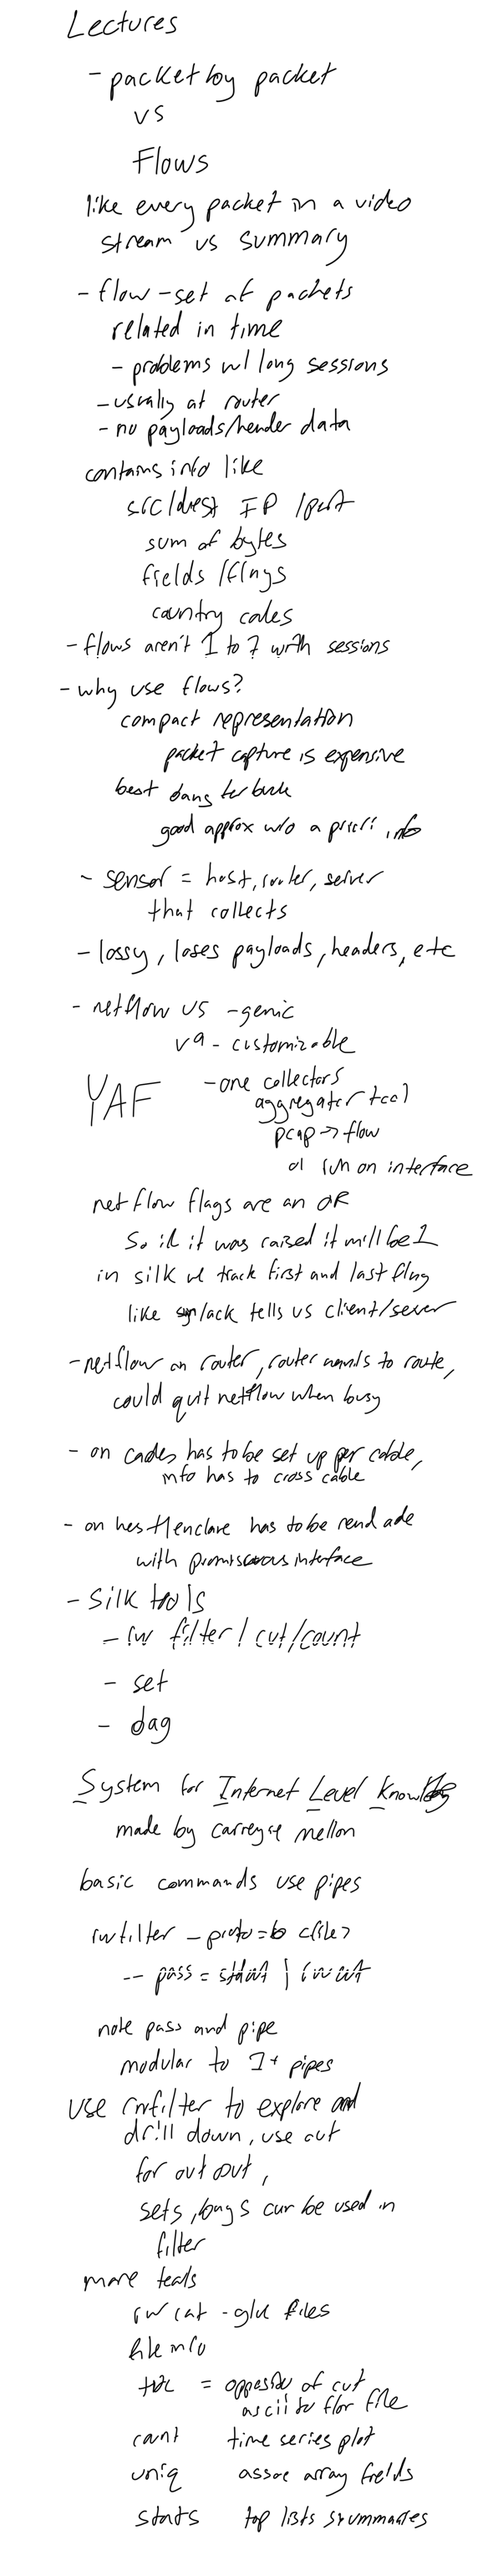 Lectures
- packet by packet
vs
Flows
like every packet in a video
stream vs summary
- flow - set of packets
related in time
- problems w/ long sessions
- usually at router
- no payloads/header data
contains info like
src/dest IP /port
sum of bytes
fields /flags
country codes
- flows aren't 1 to 1 with sessions
- why use flows?
compact representation
packet capture is expensive
best bang for buck
good approx w/o a priori info
- sensor = host, router, server
that collects
- lossy, loses payloads, headers, etc
- netflow vs
v9 - customizable
YAF - one collectors
aggregator tool
pcap -> flow
or run on interface
netflow flags are an OR
So if it was raised it will be 1
in silk we track first and last flag
like syn/ack tells us client/sever
- netflow on router, router wants to route,
could quit netflow when busy
- on cades has to be set up per cable,
info has to cross cable
- on host/enclave has to be
with promiscuous interface
- silk tools
- rw filter / cut/count
- set
- bag
System for Internet Level Knowledg
made by carnegie mellon
basic commands use pipes
rwfilter -- proto=6 <file>
-- pass = stdout | rwcut
note pass and pipe
modular to 1+ pipes
use rwfilter to explore and
drill down, use cut
for out out,
sets, bags can be used in
filter
more tools
rwcat - glue files
file info
tuc = opposite of cut
ascii to flow file
count time series plot
uniq assoc array fields
stats top lists summaries